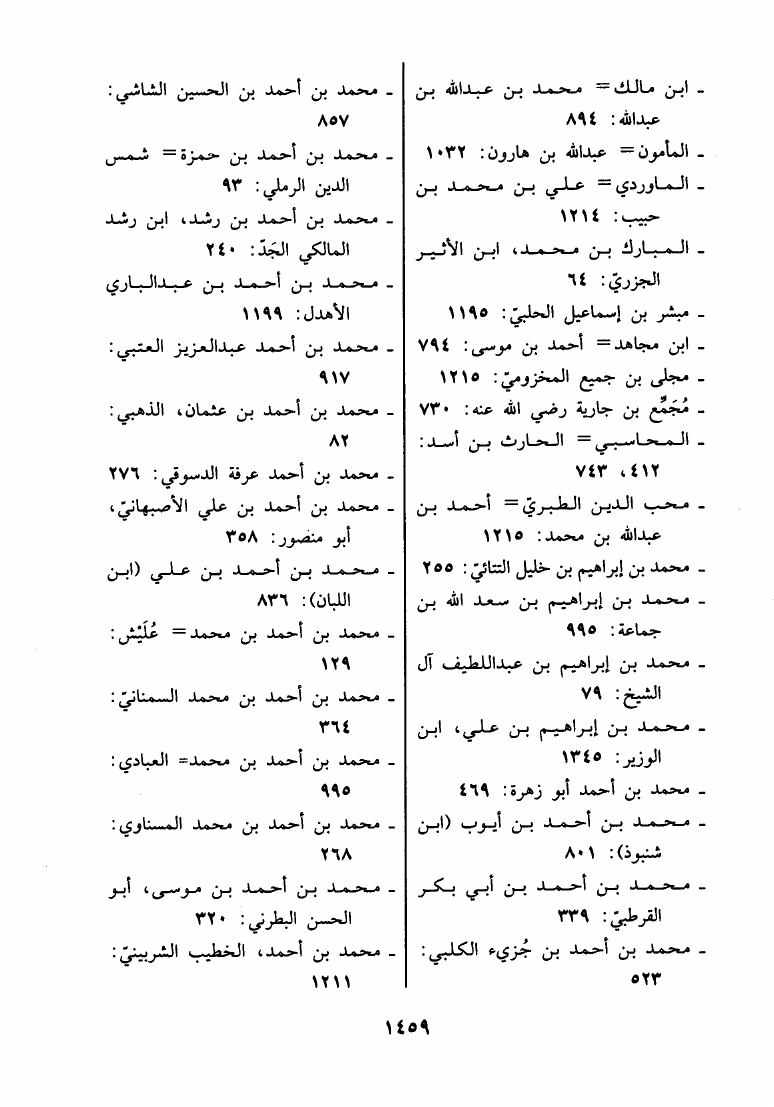 - ابن مالك= محمد بن عبدالله بن
عبدالله: ٨٩٤
- المأمون= عبدالله بن هارون: ١٠٣٢
- الماوردي= علي بن محمد بن
حبيب: ١٢١٤
- المبارك بن محمد، ابن الأثير
الجزريّ: ٦٤
- مبشر بن إسماعيل الحلبيّ: ١١٩٥
- ابن مجاهد= أحمد بن موسى: ٧٩٤
- مجلى بن جميع المخزوميّ: ١٢١٥
- مُجَمِّع بن جارية رضي الله عنه: ٧٣٠
- المحاسبي= الحارث بن أسد:
٤١٢، ٧٤٣
- محب الدين الطبريّ= أحمد بن
عبدالله بن محمد: ١٢١٥
- محمد بن إبراهيم بن خليل التتائيّ: ٢٥٥
- محمد بن إبراهيم بن سعد الله بن
جماعة: ٩٩٥
- محمد بن إبراهيم بن عبداللطيف آل
الشيخ: ٧٩
- محمد بن إبراهيم بن علي، ابن
الوزير: ١٣٤٥
- محمد بن أحمد أبو زهرة: ٤٦٩
- محمد بن أحمد بن أيوب (ابن
شنبوذ): ٨٠١
- محمد بن أحمد بن أبي بكر
القرطبيّ: ٣٣٩
- محمد بن أحمد بن جُزيء الكلبي:
٥٢٣
- محمد بن أحمد بن الحسين الشاشي:
٨٥٧
- محمد بن أحمد بن حمزة= شمس
الدين الرملي: ٩٣
- محمد بن أحمد بن رشد، ابن رشد
المالكي الجَدّ: ٢٤٠
- محمد بن أحمد بن عبدالباري
الأهدل: ١١٩٩
- محمد بن أحمد عبدالعزيز العتبي:
٩١٧
- محمد بن أحمد بن عثمان، الذهبي:
٨٢
- محمد بن أحمد عرفة الدسوقي: ٢٧٦
- محمد بن أحمد بن علي الأصبهانيّ،
أبو منصور: ٣٥٨
- محمد بن أحمد بن علي (ابن
اللبان): ٨٣٦
- محمد بن أحمد بن محمد= عُلَيْش:
١٢٩
- محمد بن أحمد بن محمد السمنانيّ:
٣٦٤
- محمد بن أحمد بن محمد= العبادي:
٩٩٥
- محمد بن أحمد بن محمد المسناوي:
٢٦٨
- محمد بن أحمد بن موسى، أبو
الحسن البطرني: ٣٢٠
- محمد بن أحمد، الخطيب الشربينيّ:
١٢١١
١٤٥٩